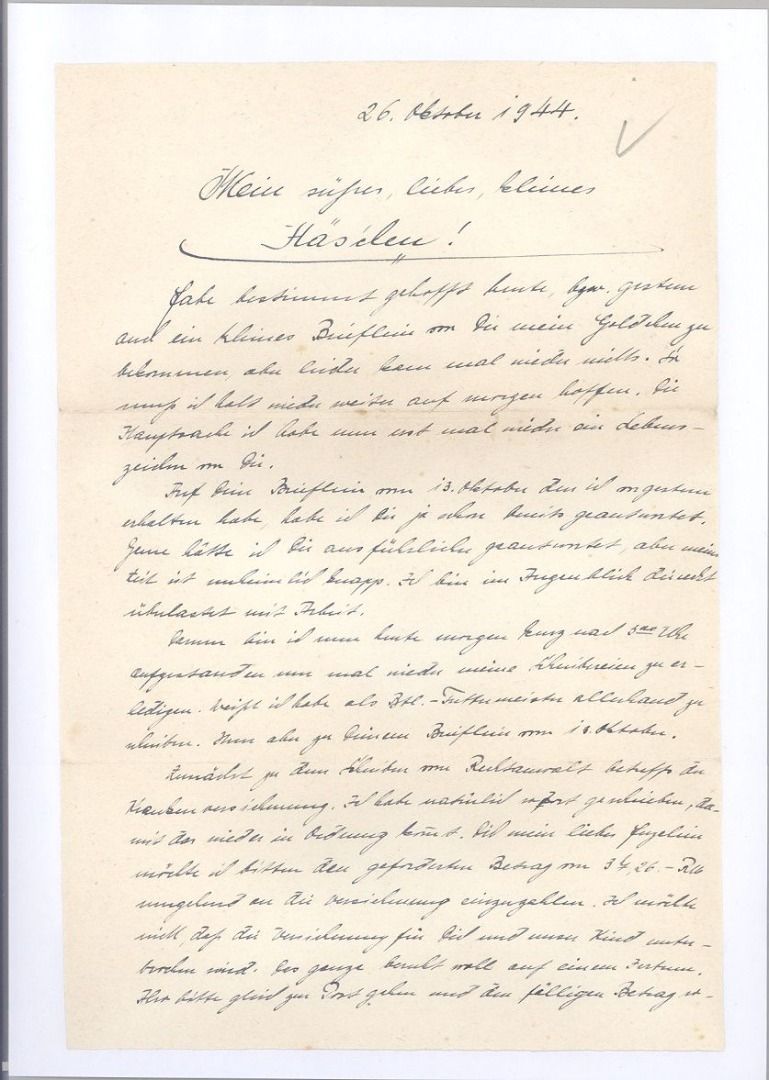 26. Oktober 1944.
Mein süßes, liebes, kleines
Häschen!
Habe bestimmt gehofft heute, bzw. gestern
auch ein kleines Brieflein von Dir mein Goldchen zu
bekommen, aber leider kam mal wieder nichts. So
muß ich halt wieder weiter auf morgen hoffen. Die
Hauptsache ich habe nun erst mal wieder ein Lebens-
zeichen von Dir.
Auf Dein Brieflein vom 13. Oktober den ich vorgestern
erhalten habe, habe ich Dir ja schon bereits geantwortet.
Gerne hätte ich Dir ausführlicher geantwortet, aber meine
Zeit ist unheimlich knapp. Ich bin im Augenblick direkt
überlastet mit Arbeit.
Darum bin ich nun heute morgen kurz nach Uhr
aufgestanden um mal wieder meine Schreibereien zu er-
ledigen. Weißt ich habe als Btl.-Futtermeister allerhand zu
schreiben. Nun aber zu Deinem Brieflein vom Oktober.
Zunächst zu dem Schreiben vom Rechtsanwalt betreffs der
Krankenversicherung. Ich habe natürlich sofort geschrieben, da-
mit das wieder in Ordnung kommt. Dich mein liebes Engelein
möchte ich bitten den geforderten Betrag von 34,26.- RM
umgehend an die Versicherung einzuzahlen. Ich möchte
nicht, daß die Versicherung für Dich und unser Kind unter-
brochen wird. Das ganze beruht wohl auf einem Irrtum.
Also bitte gleich zur Post gehen und den fälligen Betrag